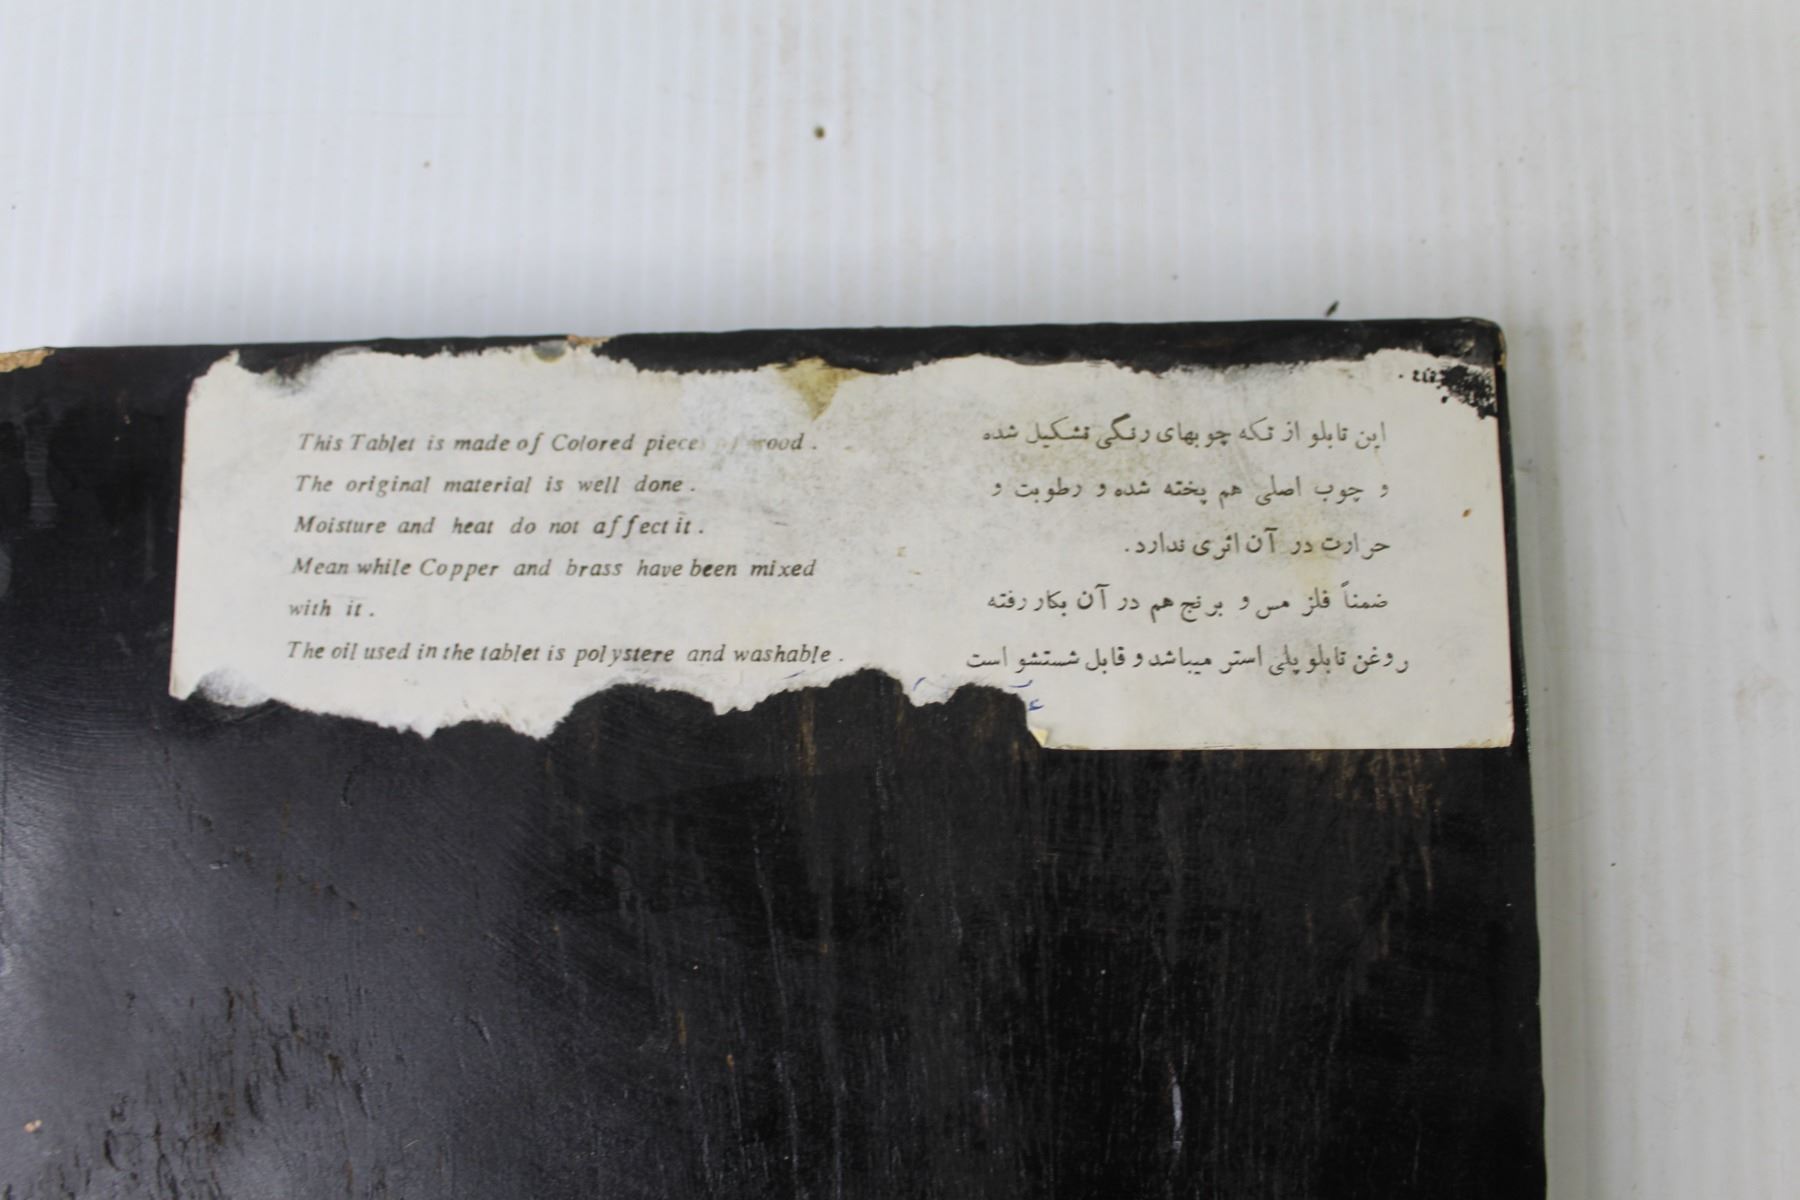 This Tablet is made of Colored pieces of wood .
The original material is well done .
Moisture and heat do not affect it .
Mean while Copper and brass have been mixed
with it .
The oil used in the tablet is polystere and washable .
این تابلو از تکه چوبهای رنگی تشکیل شده
و چوب اصلی هم پخته شده و رطوبت و
حرارت در آن اثری ندارد .
ضمناً فلز مس و برنج هم در آن بکار رفته
روغن تابلو پلی استر میباشد و قابل شستشو است